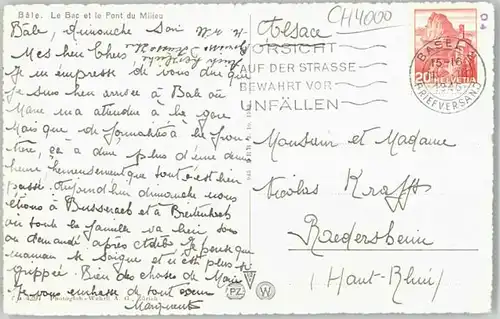 Bâle. Le Bac et le Pont du Milieu
Bâle, dimanche soir
Mes bien chers,
Je m'empresse de vous dire que
je suis bien arrivée à Bâle où
Marie m'a attendue à la gare
Mais que de formalités à la fron
tière, ça a duré plus d'une demi
heure heureusement que tout s'est bien
passé. Aujourd'hui dimanche nous
étions à et à Breitenbach
où toute la famille va bien on
a demandé après
maman se soigne et n'est plus si
grippée. Bien des choses de Marie
Je vous embrasse de tout cœur
Marguerite
Photoglob-Wehrli A. G., Zürich
PZ W
Alsace
CH4000
VORSICHT
AUF DER STRASSE
BEWAHRT VOR
UNFÄLLEN
BASEL
15-16
BRIEFVERSAND
20 HELVETIA
Monsieur et Madame
Nicolas Krafft
Raedersheim
(Haut-Rhin)